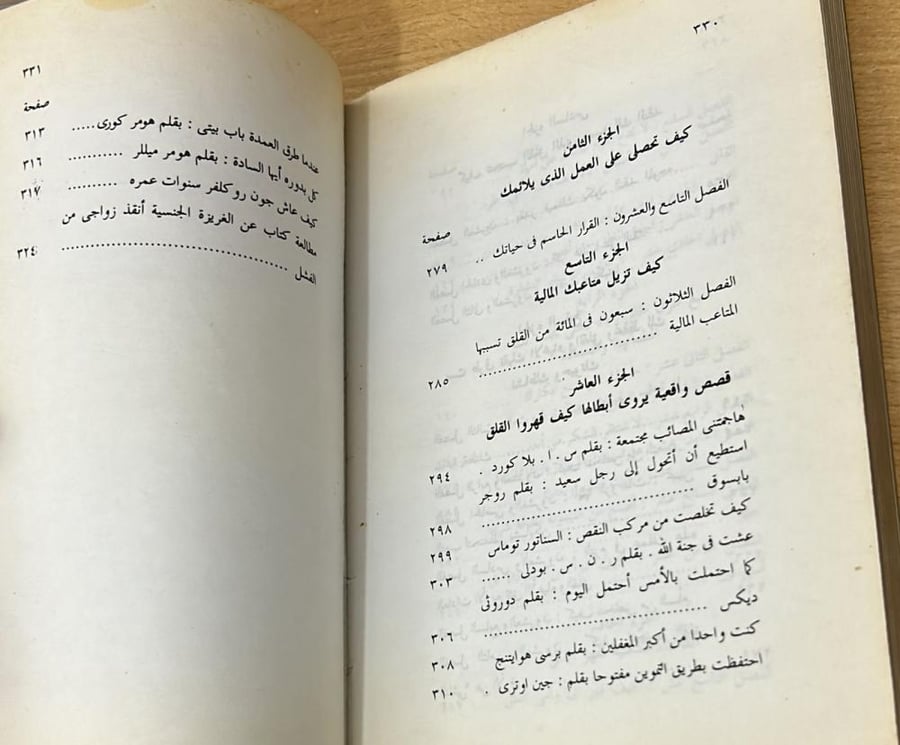 ٣٣٠
الجزء الثامن
كيف تحصلى على العمل الذى يلائمك
صفحة
الفصل التاسع والعشرون : القرار الحاسم فى حياتك .. ٢٧٩
الجزء التاسع
كيف تزيل متاعبك المالية
الفصل الثلاثون : سبعون فى المائة من القلق تسببها
المتاعب المالية .............................. ٢٨٥
الجزء العاشر
قصص واقعية يروى أبطالها كيف قهروا القلق
هاجمتنى المصائب مجتمعة : بقلم س . ا . بلا كورد . ٢٩٤
استطيع أن أتحول إلى رجل سعيد : بقلم روجر
بابسوق .............................. ٢٩٨
كيف تخلصت من مركب النقص : السناتور توماس ٢٩٩
عشت فى جنة الله . بقلم ر . ن . س . بودلى ...... ٣٠٣
كما احتملت بالأمس أحتمل اليوم : بقلم دوروثى
ديكس .............................. ٣٠٦
كنت واحدا من أكبر المغفلين : بقلم برسى هوايتنج ٣٠٨
احتفظت بطريق التموين مفتوحا بقلم : جين اوترى . ٣١٠
٣٣١
صفحة
عندما طرق العمدة باب بيتى : بقلم هومر كورى..... ٣١٣
كل بدوره أيها السادة : بقلم هومر ميللر ........... ٣١٦
كيف عاش جون روكلفر سنوات عمره .......... ٣١٧
مطالعة كتاب عن الغريزة الجنسية أنقذ زواجى من
الفشل .............................. ٣٢٤